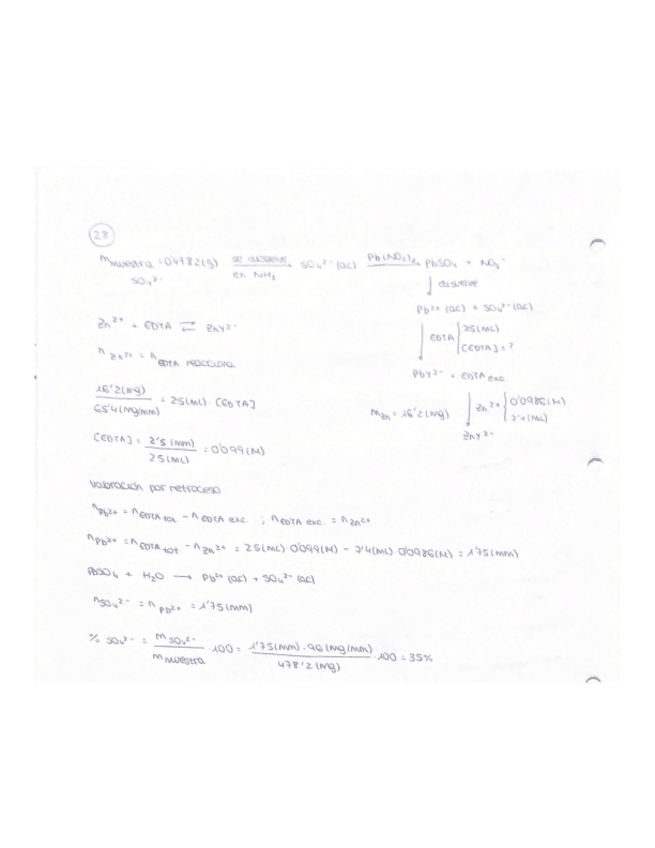 28
m muestra = 0'4782(g) se disuelve en NH3 SO4²⁻(ac) Pb(NO3)2 PbSO4 + NO3⁻
SO4²⁻
disuelve
Pb²⁺(ac) + SO4²⁻(ac)
Zn²⁺ + EDTA ⇄ ZnY²⁻
EDTA 25(mL)
[EDTA] = ?
n Zn²⁺ = n EDTA reacciona
PbY²⁻ + EDTA exc
16'2(mg) / 65'4(mg/mm) = 25(mL) · [EDTA]
m Zn = 16'2(mg) Zn²⁺ 0'0986(M)
7'4(mL)
ZnY²⁻
[EDTA] = 2'5(mm) / 25(mL) = 0'099(M)
valoración por retroceso
n Pb²⁺ = n EDTA tot - n EDTA exc. ; n EDTA exc. = n Zn²⁺
n Pb²⁺ = n EDTA tot - n Zn²⁺ = 25(mL) · 0'099(M) - 7'4(mL) · 0'0986(M) = 1'75(mm)
PbSO4 + H2O → Pb²⁺(ac) + SO4²⁻(ac)
n SO4²⁻ = n Pb²⁺ = 1'75(mm)
% SO4²⁻ = m SO4²⁻ / m muestra · 100 = 1'75(mm) · 96(mg/mm) / 478'2(mg) · 100 = 35%